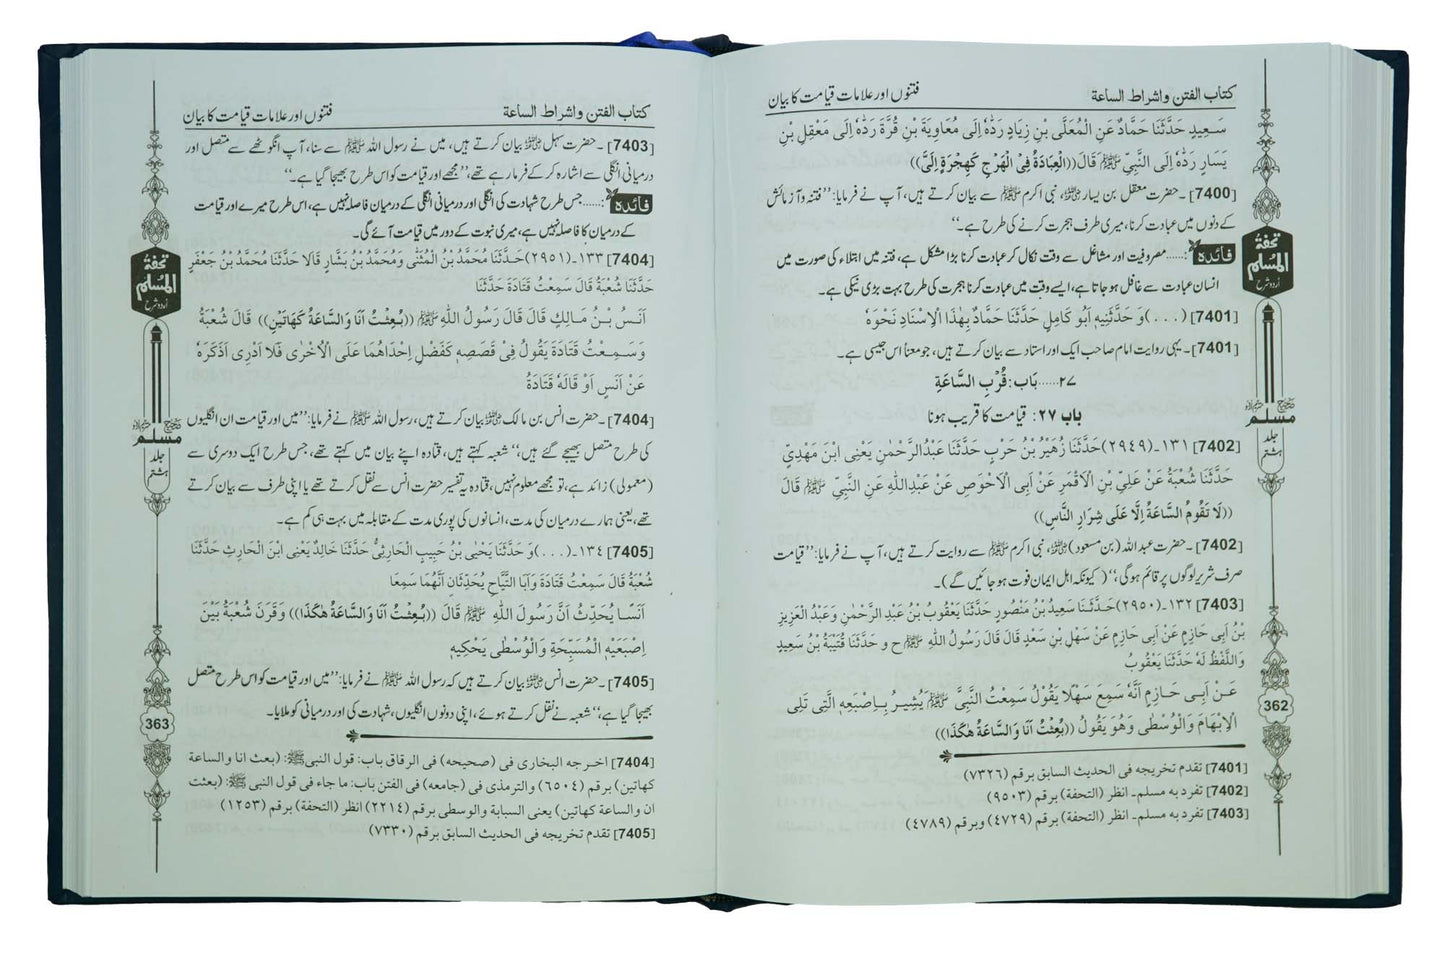 كتاب الفتن واشراط الساعة
فتنوں اور علامات قیامت کا بیان
سَعِيدٍ حَدَّثَنَا حَمَّادٌ عَنِ الْمُعَلَّى بْنِ زِيَادٍ رَدَّهُ إِلَى مُعَاوِيَةَ بْنِ قُرَّةَ رَدَّهُ إِلَى مَعْقِلِ بْنِ
يَسَارٍ رَدَّهُ إِلَى النَّبِيِّ ﷺ قَالَ ((الْعِبَادَةُ فِي الْهَرْجِ كَهِجْرَةٍ إِلَيَّ))
[7400]۔حضرت معقل بن یسار ﷺ، نبی اکرم ﷺ سے بیان کرتے ہیں، آپ نے فرمایا: ’’فتنہ وآزمائش
کے دنوں میں عبادت کرنا، میری طرف ہجرت کرنے کی طرح ہے۔‘‘
فائدہ:......مصروفیت اور مشاغل سے وقت نکال کر عبادت کرنا بڑا مشکل ہے، فتنہ میں ابتلاء کی صورت میں
انسان عبادت سے غافل ہو جاتا ہے، ایسے وقت میں عبادت کرنا ہجرت کی طرح بہت بڑی نیکی ہے۔
[7401] (...) وَ حَدَّثَنِيهِ أَبُو كَامِلٍ حَدَّثَنَا حَمَّادٌ بِهٰذَا الْإِسْنَادِ نَحْوَهُ
[7401]۔یہی روایت امام صاحب ایک اور استاد سے بیان کرتے ہیں، جو معناً اس جیسی ہے۔
۲۷......بَاب: قُرْبِ السَّاعَةِ
باب ۲۷: قیامت کا قریب ہونا
[7402] ۱۳۱۔(۲۹۴۹) حَدَّثَنَا زُهَيْرُ بْنُ حَرْبٍ حَدَّثَنَا عَبْدُالرَّحْمٰنِ يَعْنِي ابْنَ مَهْدِيٍّ
حَدَّثَنَا شُعْبَةُ عَنْ عَلِيِّ بْنِ الْأَقْمَرِ عَنْ أَبِي الْأَحْوَصِ عَنْ عَبْدِاللّٰهِ عَنِ النَّبِيِّ ﷺ قَالَ
((لَا تَقُومُ السَّاعَةُ إِلَّا عَلٰى شِرَارِ النَّاسِ))
[7402]۔حضرت عبداللہ (بن مسعود) ﷺ، نبی اکرم ﷺ سے روایت کرتے ہیں، آپ نے فرمایا: ’’قیامت
صرف شریر لوگوں پر قائم ہوگی،‘‘ (کیونکہ اہل ایمان فوت ہو جائیں گے)۔
[7403] ۱۳۲۔(۲۹۵۰) حَدَّثَنَا سَعِيدُ بْنُ مَنْصُورٍ حَدَّثَنَا يَعْقُوبُ بْنُ عَبْدِ الرَّحْمٰنِ وَعَبْدُ الْعَزِيزِ
بْنُ أَبِي حَازِمٍ عَنْ أَبِي حَازِمٍ عَنْ سَهْلِ بْنِ سَعْدٍ قَالَ قَالَ رَسُولُ اللّٰهِ ﷺ ح و حَدَّثَنَا قُتَيْبَةُ بْنُ سَعِيدٍ
وَاللَّفْظُ لَهُ حَدَّثَنَا يَعْقُوبُ
عَنْ أَبِي حَازِمٍ أَنَّهُ سَمِعَ سَهْلًا يَقُولُ سَمِعْتُ النَّبِيَّ ﷺ يُشِيرُ بِإِصْبَعِهِ الَّتِي تَلِي
الْإِبْهَامَ وَالْوُسْطٰى وَهُوَ يَقُولُ ((بُعِثْتُ أَنَا وَالسَّاعَةُ هٰكَذَا))
[7401] تقدم تخريجه فى الحديث السابق برقم (۷۳۲۶)
[7402] تفرد به مسلم۔ انظر (التحفة) برقم (۹۵۰۳)
[7403] تفرد به مسلم۔ انظر (التحفة) برقم (۴۷۲۹) وبرقم (۴۷۸۹)
تحفۃ
المسلم
اردو شرح
صحیح
مسلم
جلد
ہشتم
362
كتاب الفتن واشراط الساعة
فتنوں اور علامات قیامت کا بیان
[7403]۔حضرت سہل ﷺ بیان کرتے ہیں، میں نے رسول اللہ ﷺ سے سنا، آپ انگوٹھے سے متصل اور
درمیانی انگلی سے اشارہ کر کے فرما رہے تھے، ’’مجھے اور قیامت کو اس طرح بھیجا گیا ہے۔‘‘
فائدہ:......جس طرح شہادت کی انگلی اور درمیانی انگلی کے درمیان فاصلہ نہیں ہے، اس طرح میرے اور قیامت
کے درمیان کا فاصلہ نہیں ہے، میری نبوت کے دور میں قیامت آئے گی۔
[7404] ۱۳۳۔(۲۹۵۱) حَدَّثَنَا مُحَمَّدُ بْنُ الْمُثَنَّى وَمُحَمَّدُ بْنُ بَشَّارٍ قَالَا حَدَّثَنَا مُحَمَّدُ بْنُ جَعْفَرٍ
حَدَّثَنَا شُعْبَةُ قَالَ سَمِعْتُ قَتَادَةَ حَدَّثَنَا
أَنَسُ بْنُ مَالِكٍ قَالَ قَالَ رَسُولُ اللّٰهِ ﷺ ((بُعِثْتُ أَنَا وَالسَّاعَةُ كَهَاتَيْنِ)) قَالَ شُعْبَةُ
وَسَمِعْتُ قَتَادَةَ يَقُولُ فِي قَصَصِهِ كَفَضْلِ إِحْدَاهُمَا عَلَى الْأُخْرٰى فَلَا أَدْرِي أَذَكَرَهُ
عَنْ أَنَسٍ أَوْ قَالَهُ قَتَادَةُ
[7404]۔حضرت انس بن مالک ﷺ بیان کرتے ہیں، رسول اللہ ﷺ نے فرمایا: ’’میں اور قیامت ان انگلیوں
کی طرح متصل بھیجے گئے ہیں،‘‘ شعبہ کہتے ہیں، قتادہ اپنے بیان میں کہتے تھے، جس طرح ایک دوسری سے
(معمولی) زائد ہے، تو مجھے معلوم نہیں، قتادہ یہ تفسیر حضرت انس سے نقل کرتے تھے یا اپنی طرف سے بیان کرتے
تھے، یعنی ہمارے درمیان کی مدت، انسانوں کی پوری مدت کے مقابلہ میں بہت ہی کم ہے۔
[7405] ۱۳۴۔(...) وَ حَدَّثَنَا يَحْيَى بْنُ حَبِيبٍ الْحَارِثِيُّ حَدَّثَنَا خَالِدٌ يَعْنِي ابْنَ الْحَارِثِ حَدَّثَنَا
شُعْبَةُ قَالَ سَمِعْتُ قَتَادَةَ وَأَبَا التَّيَّاحِ يُحَدِّثَانِ أَنَّهُمَا سَمِعَا
أَنَسًا يُحَدِّثُ أَنَّ رَسُولَ اللّٰهِ ﷺ قَالَ ((بُعِثْتُ أَنَا وَالسَّاعَةُ هٰكَذَا)) وَقَرَنَ شُعْبَةُ بَيْنَ
إِصْبَعَيْهِ الْمُسَبِّحَةِ وَالْوُسْطٰى يَحْكِيهِ
[7405]۔حضرت انس ﷺ بیان کرتے ہیں کہ رسول اللہ ﷺ نے فرمایا: ’’میں اور قیامت کو اس طرح متصل
بھیجا گیا ہے،‘‘ شعبہ نے نقل کرتے ہوئے، اپنی دونوں انگلیوں، شہادت کی اور درمیانی کو ملایا۔
[7404] اخرجه البخارى فى (صحيحه) فى الرقاق باب: قول النبى ﷺ: (بعث انا والساعة
كهاتين) برقم (۶۵۰۴) والترمذى فى (جامعه) فى الفتن باب: ما جاء فى قول النبى ﷺ: (بعثت
ان والساعة كهاتين) يعنى السبابة والوسطى برقم (۲۲۱۴) انظر (التحفة) برقم (۱۲۵۳)
[7405] تقدم تخريجه فى الحديث السابق برقم (۷۳۳۰)
تحفۃ
المسلم
اردو شرح
صحیح
مسلم
جلد
ہشتم
363